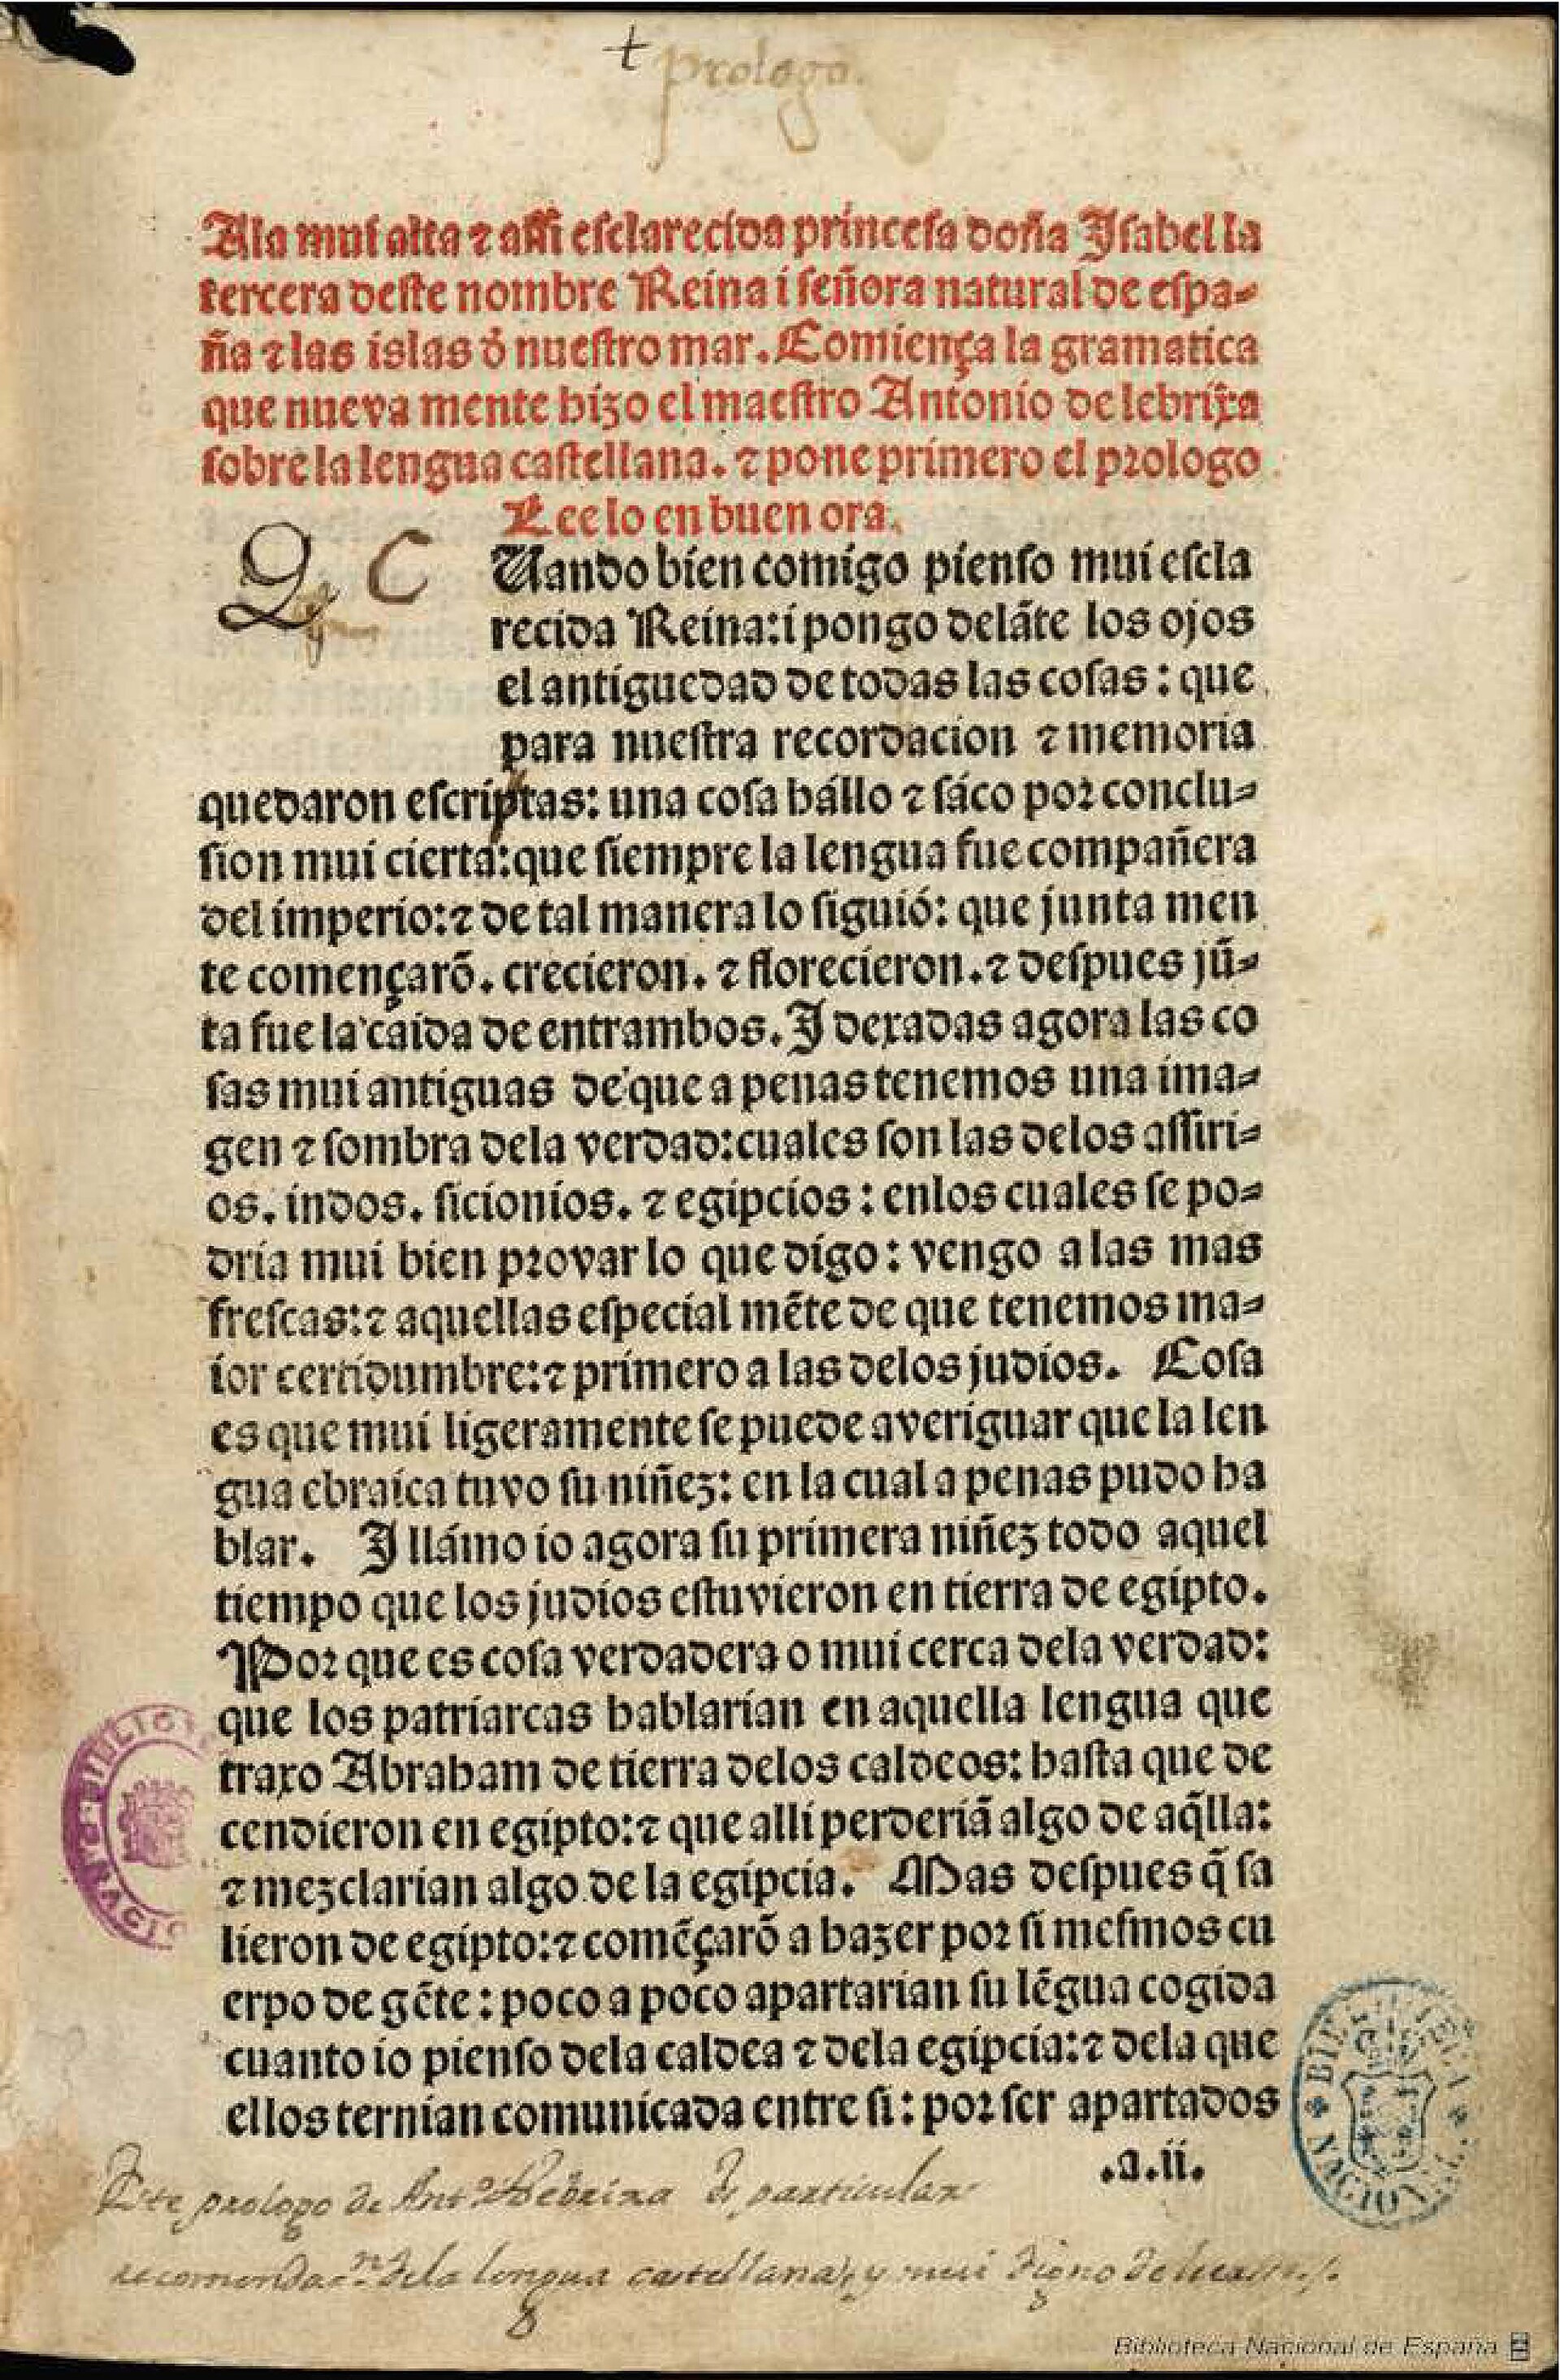 + prologo.
Ala mui alta ⁊ assi esclarecida princesa doña Isabel la
tercera deste nombre Reina i señora natural de espa⸗
ña ⁊ las islas đ nuestro mar. Comiença la gramatica
que nueva mente hizo el maestro Antonio de lebrixa
sobre la lengua castellana. ⁊ pone primero el prologo
Lee lo en buen ora.
Q C
Uando bien comigo pienso mui escla
recida Reina: i pongo delãte los ojos
el antiguedad de todas las cosas: que
para nuestra recordacion ⁊ memoria
quedaron escriptas: una cosa hállo ⁊ sáco por conclu⸗
sion mui cierta: que siempre la lengua fue compañera
del imperio: ⁊ de tal manera lo siguió: que junta men
te començarõ. crecieron. ⁊ florecieron. ⁊ despues jũ⸗
ta fue la caida de entrambos. I dexadas agora las co
sas mui antiguas de que a penas tenemos una ima⸗
gen ⁊ sombra dela verdad: cuales son las delos assiri⸗
os. indos. sicionios. ⁊ egipcios: enlos cuales se po⸗
dria mui bien provar lo que digo: vengo a las mas
frescas: ⁊ aquellas especial mẽte de que tenemos ma⸗
ior certidumbre: ⁊ primero a las delos judios. Cosa
es que mui ligeramente se puede averiguar que la len
gua ebraica tuvo su niñez: en la cual a penas pudo ha
blar. I llámo io agora su primera niñez todo aquel
tiempo que los judios estuvieron en tierra de egipto.
Por que es cosa verdadera o mui cerca dela verdad:
que los patriarcas hablarian en aquella lengua que
traxo Abraham de tierra delos caldeos: hasta que de
cendieron en egipto: ⁊ que alli perderiã algo de aq̃lla:
⁊ mezclarian algo de la egipcia. Mas despues q̃ sa
lieron de egipto: ⁊ comẽçarõ a hazer por si mesmos cu
erpo de gẽte: poco a poco apartarian su lẽgua cogida
cuanto io pienso dela caldea ⁊ dela egipcia: ⁊ dela que
ellos ternian comunicada entre si: por ser apartados
.a.ii.
Este prologo de Antº Nebrixa es particular
recomendaⁿ. dela lengua castellana, y mui digno de
8
Biblioteca Nacional de España